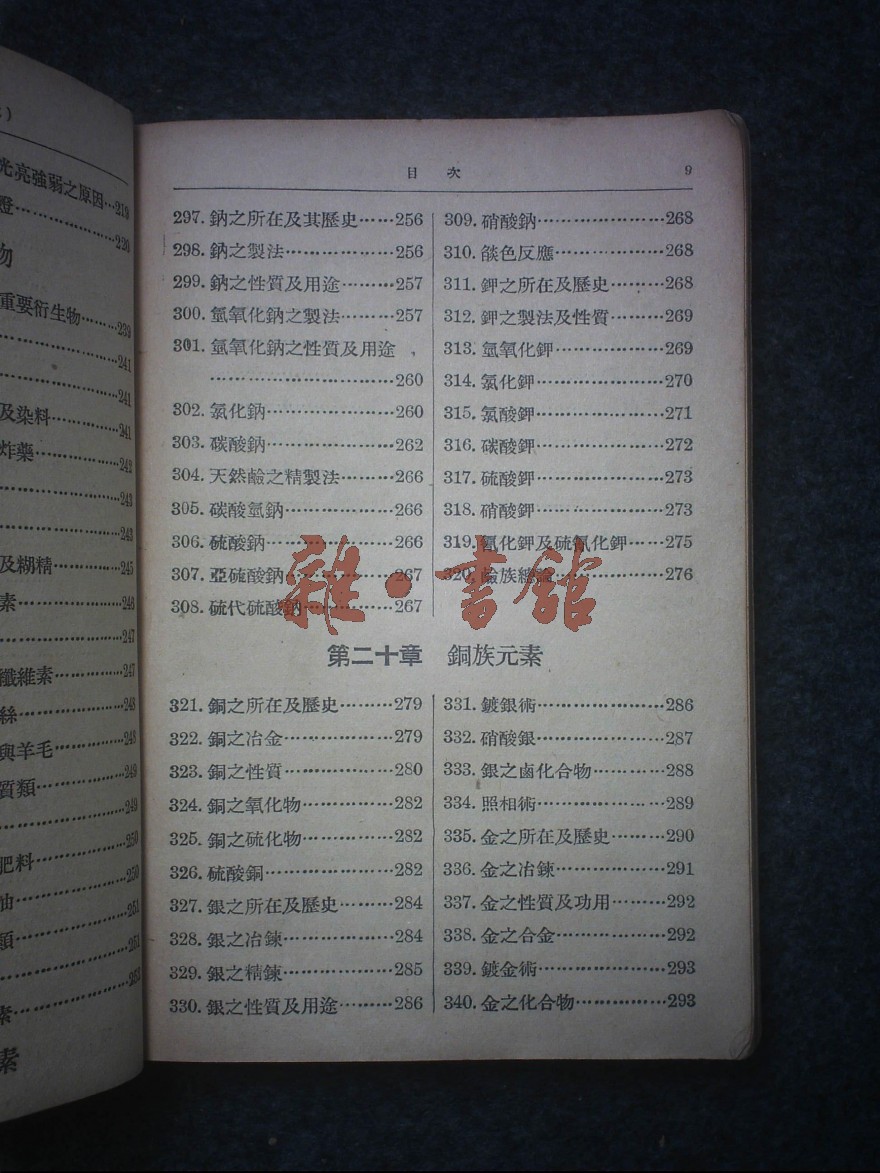 光亮強弱之原因…219
燈……220
物
重要衍生物……239
……241
……241
及染料……241
炸藥……242
……243
……243
及糊精……245
素……246
……247
纖維素……247
絲……248
與羊毛……248
質類……249
……249
肥料……250
油……250
類……251
……251
……253
素……
素
目 次 9
297.鈉之所在及其歷史……256
298.鈉之製法……256
299.鈉之性質及用途……257
300.氫氧化鈉之製法……257
301.氫氧化鈉之性質及用途
……260
302.氯化鈉……260
303.碳酸鈉……262
304.天然鹼之精製法……266
305.碳酸氫鈉……266
306.硫酸鈉……266
307.亞硫酸鈉……267
308.硫代硫酸鈉……267
309.硝酸鈉……268
310.燄色反應……268
311.鉀之所在及歷史……268
312.鉀之製法及性質……269
313.氫氧化鉀……269
314.氯化鉀……270
315.氯酸鉀……271
316.碳酸鉀……272
317.硫酸鉀……273
318.硝酸鉀……273
319.氰化鉀及硫氰化鉀……275
320.鹼族總論……276
雜·書館
第二十章 銅族元素
321.銅之所在及歷史……279
322.銅之冶金……279
323.銅之性質……280
324.銅之氧化物……282
325.銅之硫化物……282
326.硫酸銅……282
327.銀之所在及歷史……284
328.銀之冶鍊……284
329.銀之精鍊……285
330.銀之性質及用途……286
331.鍍銀術……286
332.硝酸銀……287
333.銀之鹵化合物……288
334.照相術……289
335.金之所在及歷史……290
336.金之冶鍊……291
337.金之性質及功用……292
338.金之合金……292
339.鍍金術……293
340.金之化合物……293